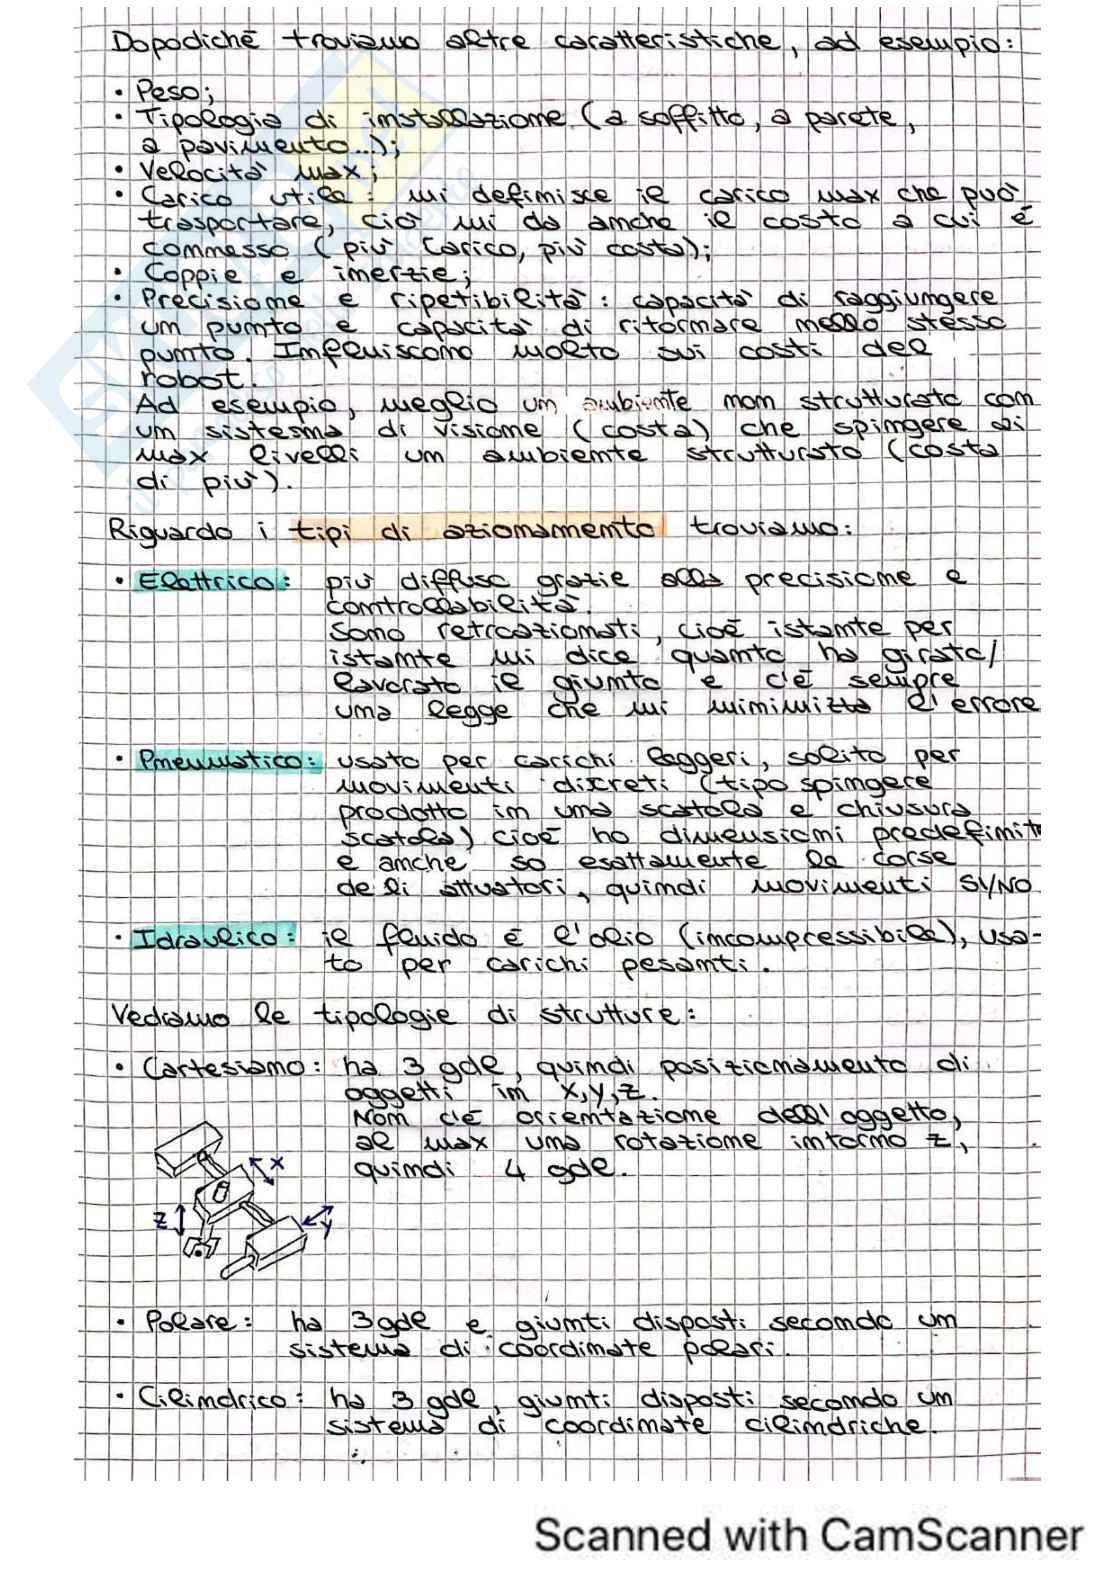 Dopodiché troviamo altre caratteristiche, ad esempio:
• Peso;
• Tipologia di installazione (a soffitto, a parete,
a pavimento...);
• Velocità max;
• Carico utile: mi definisce il carico max che può
trasportare, ciò mi da anche il costo a cui è
connesso (più carico, più costa);
• Coppie e inerzie;
• Precisione e ripetibilità: capacità di raggiungere
un punto e capacità di ritornare nello stesso
punto. Influiscono molto sui costi del
robot.
Ad esempio, meglio un ambiente non strutturato con
un sistema di visione (costa) che spingere ai
max livelli un ambiente strutturato (costa
di più).
Riguardo i tipi di azionamento troviamo:
• Elettrico: più diffuso grazie alla precisione e
controllabilità.
Sono retroazionati, cioè istante per
istante mi dice quanto ha girato/
lavorato il giunto e c'è sempre
una legge che mi minimizza l'errore
• Pneumatico: usato per carichi leggeri, solito per
movimenti discreti (tipo spingere
prodotto in una scatola e chiusura
scatola) cioè ho dimensioni predefinit
e anche so esattamente la corsa
degli attuatori, quindi movimenti SI/NO
• Idraulico: il fluido è l'olio (incompressibile), usa-
to per carichi pesanti.
Vediamo le tipologie di strutture:
• Cartesiano: ha 3 gdl, quindi posizionamento di
oggetti in x,y,z.
Non c'è orientazione dell'oggetto,
al max una rotazione intorno z,
quindi 4 gdl.
x
z
y
• Polare: ha 3gdl e giunti disposti secondo un
sistema di coordinate polari.
• Cilindrico: ha 3 gdl, giunti disposti secondo un
sistema di coordinate cilindriche.
Scanned with CamScanner